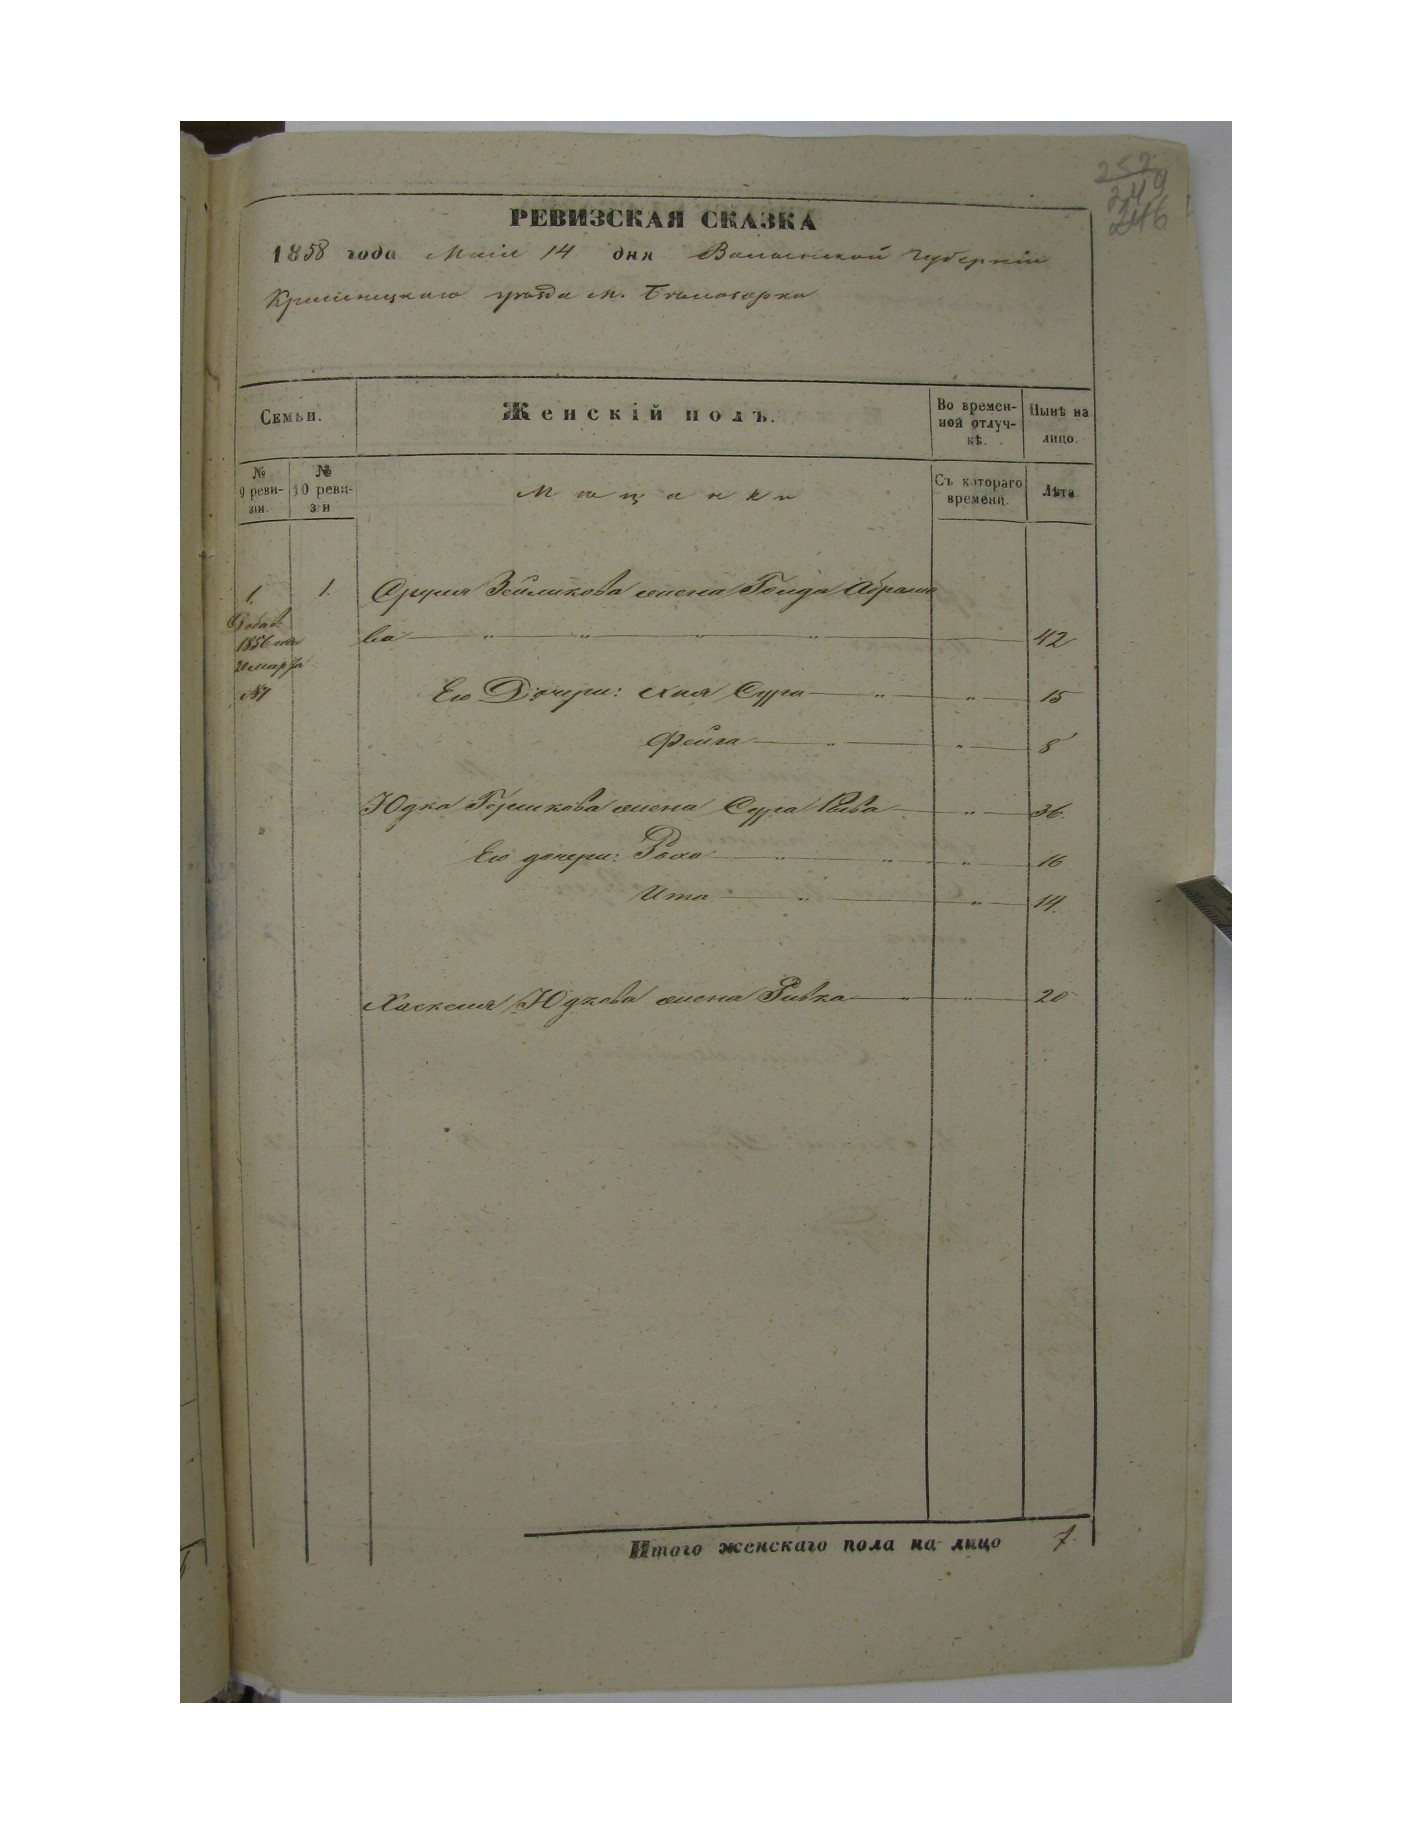 252
249
246
РЕВИЗСКАЯ СКАЗКА
1858 года Маія 14 дня Волынской губерніи
Кременецкаго уѣзда м. Бѣлозорки
Семьи.
Женскій полъ.
Во времен-
ной отлуч-
кѣ.
Нынѣ на
лицо.
№
9 реви-
зіи.
№
10 реви-
зіи
Мѣщанки
Съ котораго
времени.
Лѣта.
1 1. Сруля Зейликова жена Голда Абрамо
Добав.
ва 42
1856 года
20 марта
№1
Его Дочери: Хая Сура 15
Фейга 8
Юдка Гершкова жена Сура Ривка 36.
Его дочери: Рохо 16
Ита 14.
Хаскеля Юдкова жена Ривка 20
Итого женскаго пола на лицо 7.